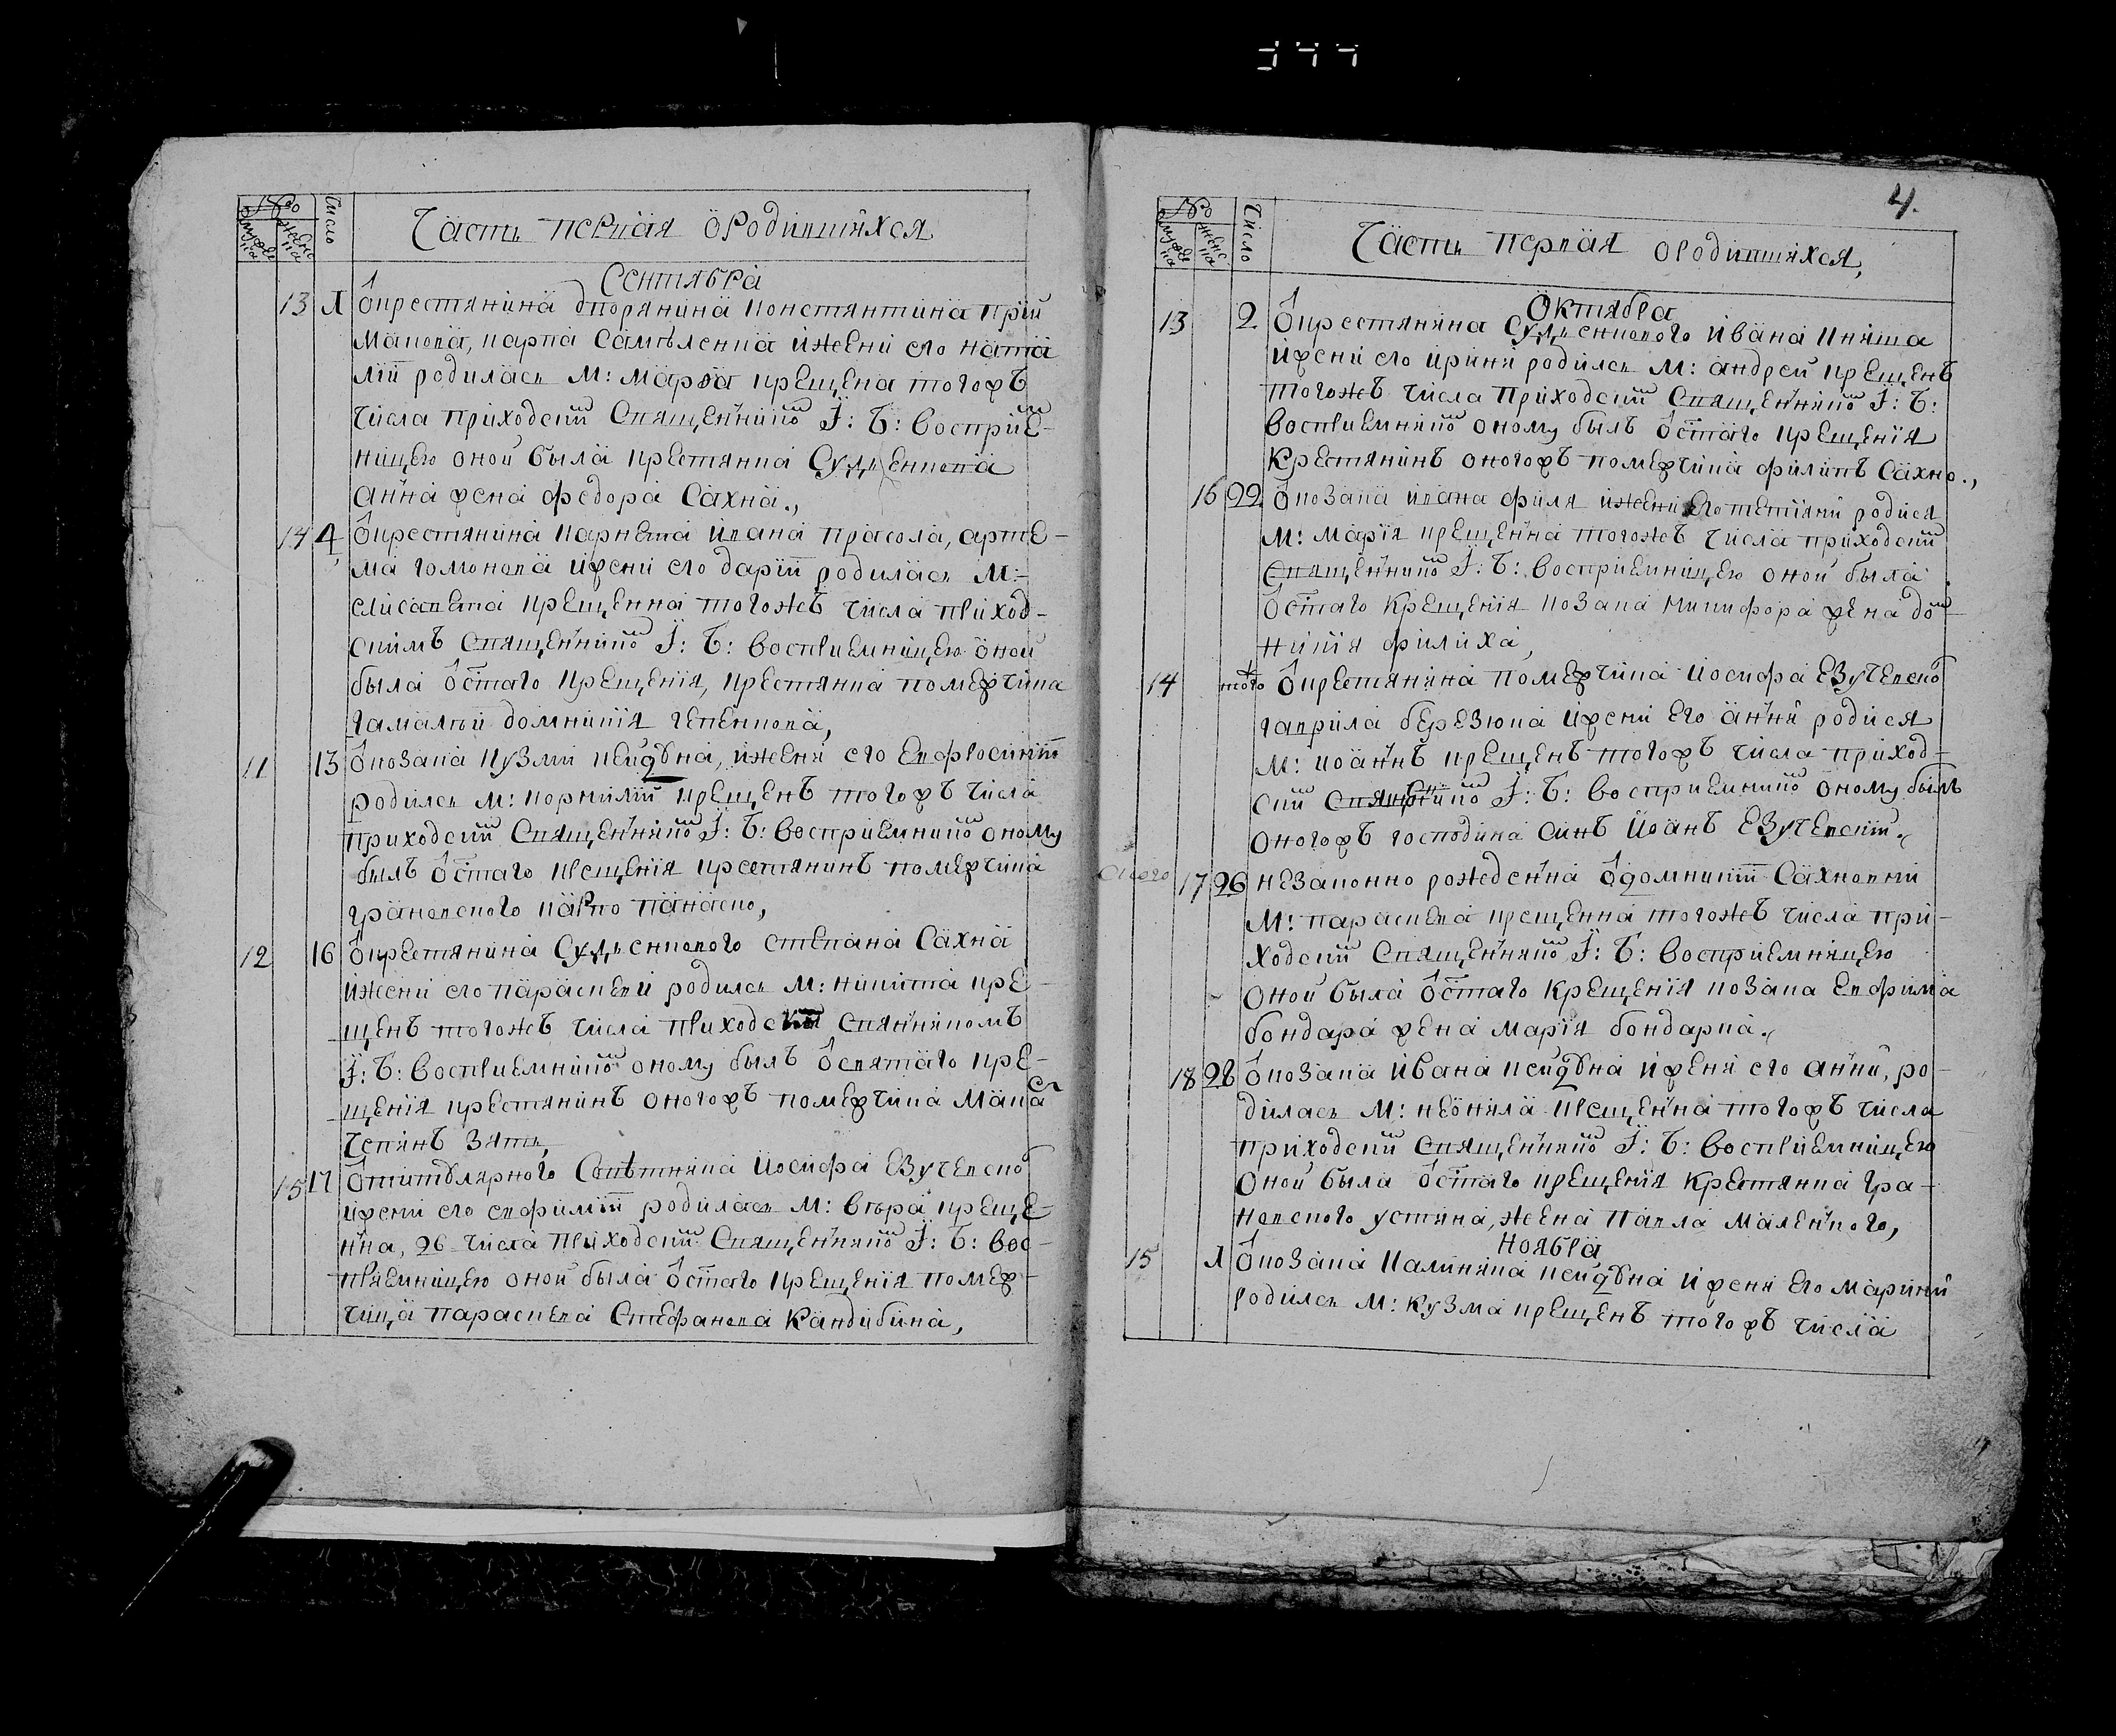 Часть первая о родившихся
No
мужеска
женска
число
Сентября
13 1 У крестянина дворянина Константина Прий
макова, Карпа Самъленка и жены его Ната
лїи родилась М: Марфа крещена тогожъ
числа приходским Священником І: Б: восприе-
ницею оной была крестянка Сулженкова
Анна жена Федора Сахна.,
14 4 У крестянина Корнета Ивана Прасола, Арте-
ма Гомонова и жены его Дарїи родилась М:-
Елисавета крещенна тогожъ числа приход-
скимъ Священником І: Б: восприемницею оной
была о[т] стаго крещенїя, крестянка помещика
Гамалѣи Домникїя
11 13 У козака Кузми Нейжона, и жены его Евфросинїи
родился М: Корнилїй крещенъ тогожъ числа
приходским Священником І: Б: восприемником оному
былъ от стаго крещенїя крестянинъ помещика
Грановского Карпо Панаско,
12 16 У крестянина Сулженкового Степана Сахна
и жены его Параскевы родился М: Никита кре-
щенъ тогожъ числа приходским Священникомъ
І: Б: восприемником оному былъ от святаго кре-
щенїя крестянинъ оногожъ помещика Мака
зять,
15 17 У титулярного Совѣтника Иосифа Езучевско
и жены его Евфимїи родилась М: Вѣра креще-
нна, 26 числа приходским Священником І: Б: вос-
прїемницею оной была от стаго крещенїя помещ-
чица Параскева Стефанова Кандибина,
4.
Часть первая о родившихся,
No
мужеска
женска
число
Октября
13 2 У крестянина Сулженкового Ивана Книша
и жены его Ирины родился М: Андрей крещенъ
тогожъ числа приходским Священником І: Б:
восприемником оному былъ от стаго крещенїя
крестянинъ оногожъ помещика Филипъ Сахно.,
16 22 У козака Ивана Филя и жены его Тетїяни родися
М: Марїя крещенна тогожъ числа приходским
Священником І: Б: восприемницею оной была
от стаго крещенїя козака Никифора жена До
никїя Филиха,
14 того У крестянина помещика Иосифа Езучевско
Гаврила Березюка и жены его Анны родися
М: Иоаннъ крещенъ тогожъ числа приход-
ским Священником І: Б: восприемником оному былъ
оногожъ господина синъ Иоанъ Езучевскїй.,
17 26 Незаконно рожденна у Домникїи Сахновни
М: Параскева крещенна тогожъ числа при-
ходским Священником І: Б: восприемницею
оной была от стаго крещенїя козака Евфима
Бондара жена Марїя Бондарка.,
18 28 У козака Ивана Нейжона и жены его Анны, ро-
дилась М: Неонила крещенна тогожъ числа
приходским Священником І: Б: восприемницею
оной была от стаго крещенїя крестянка Гра-
новского Устина, жена Павла Маленкого,
Ноября
15 1 У козака Калиника Нейжона и жены его Марины
родился М: Кузма крещенъ тогожъ числа